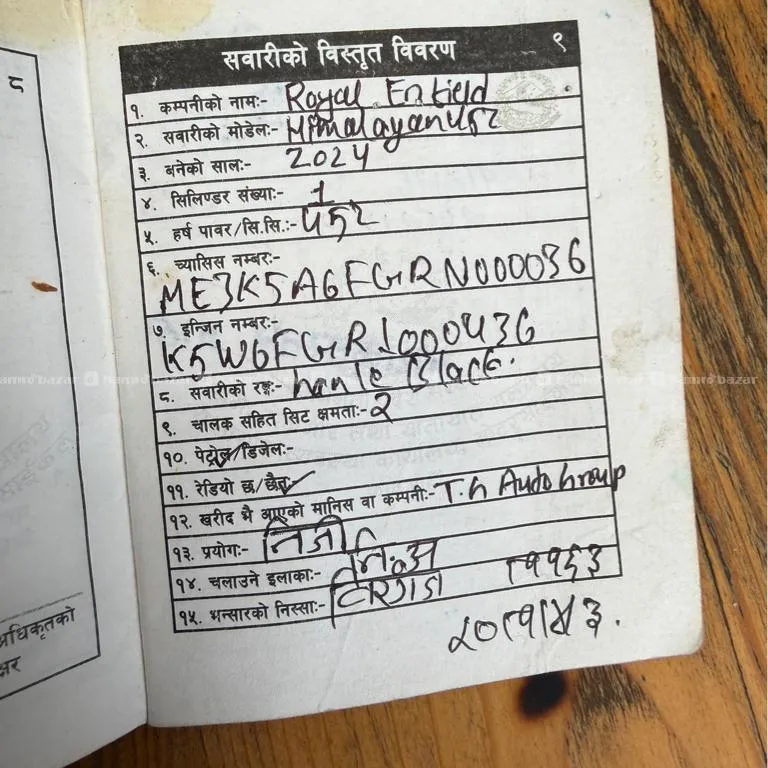 ८
सवारीको विस्तृत विवरण ९
१. कम्पनीको नामः- Royal Enfield
२. सवारीको मोडेलः- Himalayan 452
३. बनेको सालः- 2024
४. सिलिण्डर संख्याः- 1
५. हर्ष पावर/सि.सि.:- 452
६. च्यासिस नम्बरः-
ME3K5A6FGRN000036
७. इन्जिन नम्बरः-
K5W6FGRJ000436
८. सवारीको रङ्गः- hanle Black.
९. चालक सहित सिट क्षमताः- 2
१०. पेट्रोल/डिजेलः-
११. रेडियो छ/छैन
१२. खरीद भै आएको मानिस वा कम्पनीः- T.n Auto Group
१३. प्रयोगः- निजी
१४. चलाउने इलाकाः- नि.अ
१५. भन्सारको निस्साः-
अधिकृतको
hamrobazar